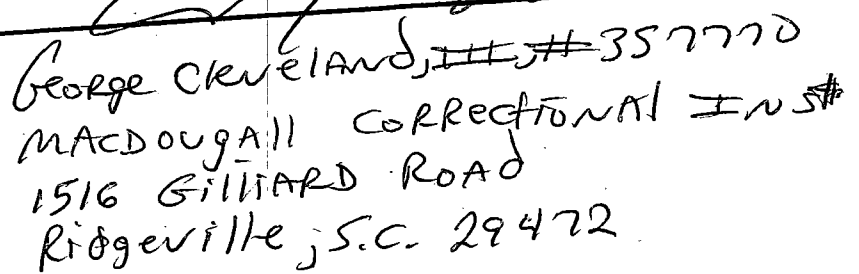 George Cleveland, III, #357770
MACDougall Correctional Inst
1516 Gilliard Road
Ridgeville, S.C. 29472